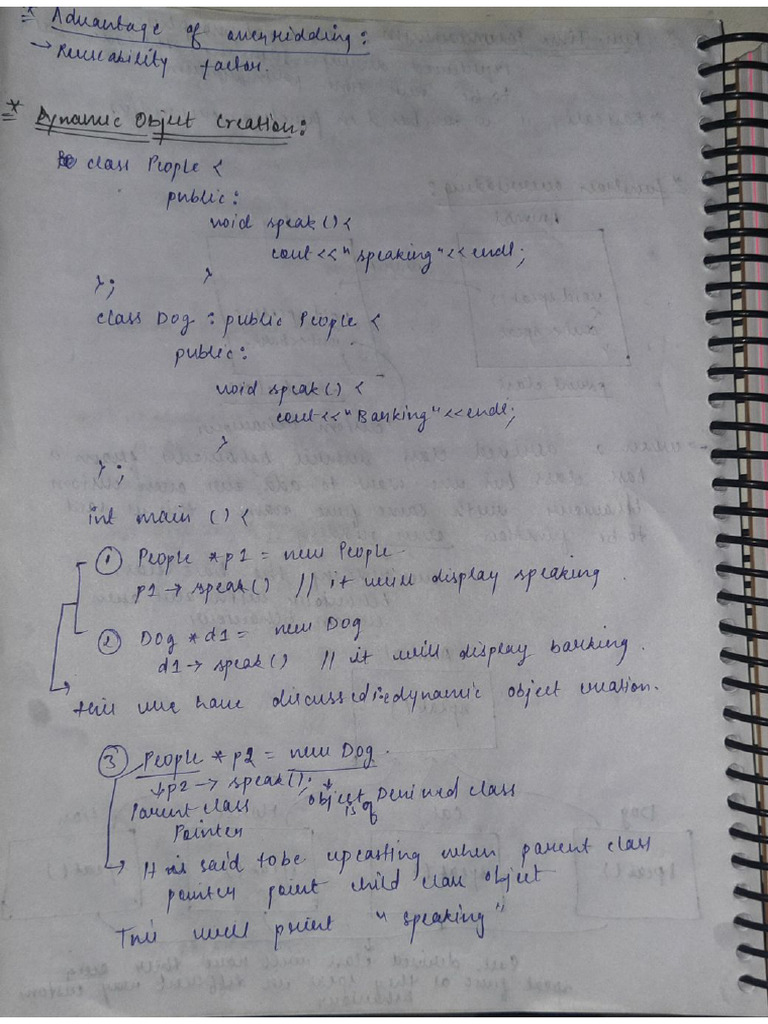 * Advantage of overridding:
→ Reuseability factor.
* Dynamic Object Creation:
class People {
public:
void speak () {
cout << "speaking" << endl;
}
};
class Dog : public People {
public:
void speak () {
cout << "Barking" << endl;
}
};
int main () {
① People *p1 = new People
p1 → speak() // it will display speaking.
② Dog *d1 = new Dog
d1 → speak() // it will display barking.
Here we have discussed dynamic object creation.
③ People *p2 = new Dog.
p2 → speak();
Parent class object is of Derived class
Pointer
→ It is said to be upcasting when parent class
pointer point child class object
This will print "speaking"